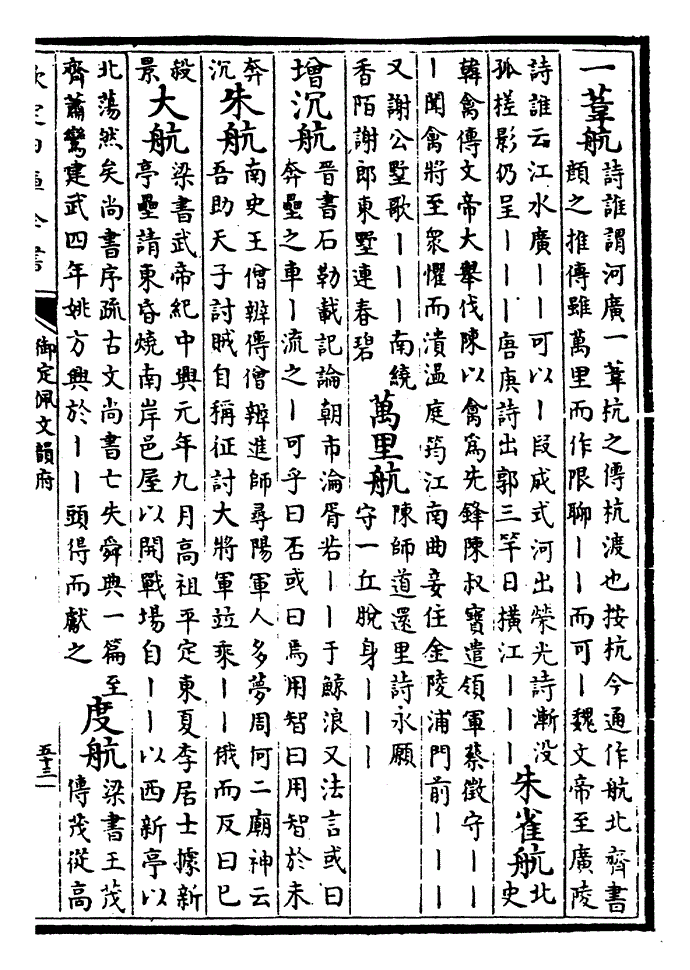 一葦航
詩誰謂河廣一葦杭之傳杭渡也按杭今通作航北齊書
顔之推傳雖萬里而作限聊丨丨而可丨魏文帝至廣陵
詩誰云江水廣丨丨可以丨段成式河出榮光詩漸没
孤槎影仍呈丨丨丨唐庚詩出郭三竿日橫江丨丨丨
朱雀航
北
史
韓禽傳文帝大舉伐陳以禽爲先鋒陳叔寶遣領軍蔡徵守丨丨
丨聞禽將至衆懼而潰温庭筠江南曲妾住金陵浦門前丨丨丨
又謝公墅歌丨丨丨南繞
香陌謝郎東墅連春碧
萬里航
陳師道還里詩永願
守一丘脫身丨丨丨
增沉航
晉書石勒載記論朝市淪胥若丨丨于鯨浪又法言或曰
奔壘之車丨流之丨可乎曰否或曰焉用智曰用智於未
奔
沉
朱航
南史王僧辯傳僧辯進師尋陽軍人多夢周何二廟神云
吾助天子討賊自稱征討大將軍竝乘丨丨俄而反曰已
殺
景
大航
梁書武帝紀中興元年九月高祖平定東夏李居士據新
亭壘請東昏燒南岸邑屋以開戰場自丨丨以西新亭以
北蕩然矣尚書序疏古文尚書亡失舜典一篇至
齊蕭鸞建武四年姚方興於丨丨頭得而獻之
度航
梁書王茂
傳茂從高
欽定四庫全書
御定佩文韻府
五十三